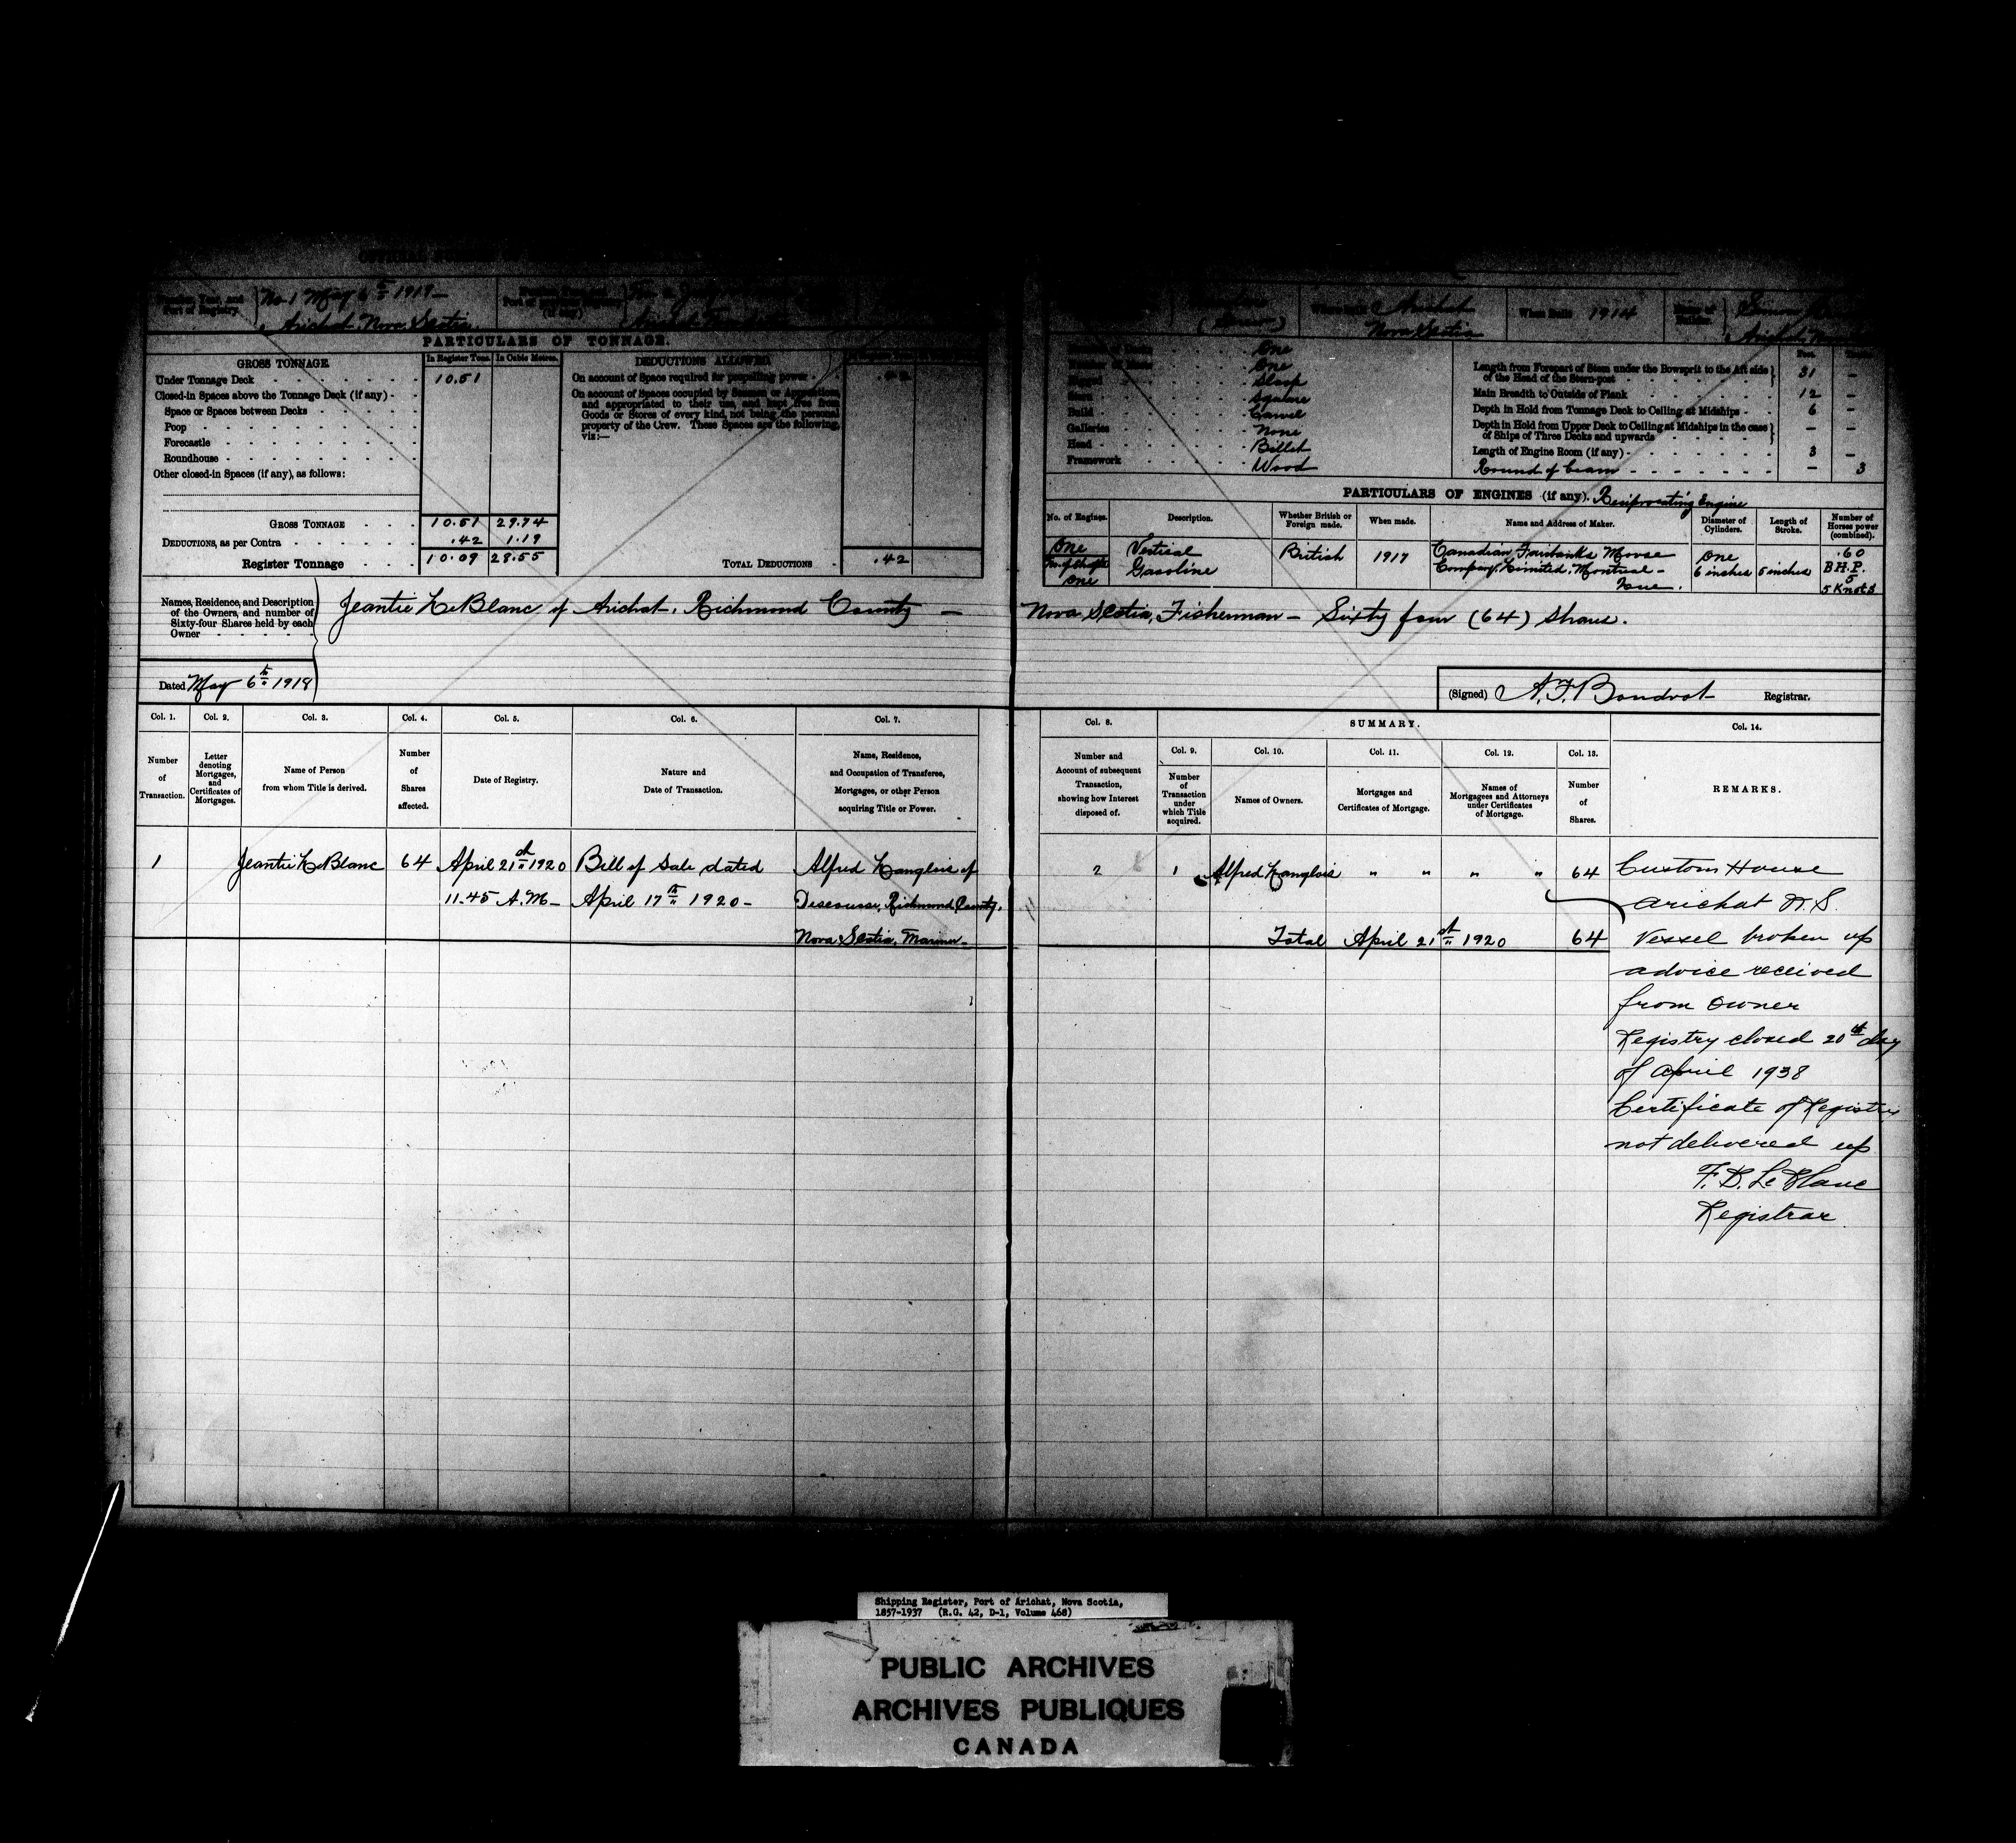 No 1 May 6th 1919
Port of Registry.
Arichat Nova Scotia
PARTICULARS OF TONNAGE.
GROSS TONNAGE
In Register Tons. In Cubic Metres.
DEDUCTIONS ALLOWED
Under Tonnage Deck 10.51
Closed-in Spaces above the Tonnage Deck (if any)
Space or Spaces between Decks
Poop
Forecastle
Roundhouse
Other closed-in Spaces (if any), as follows:
GROSS TONNAGE 10.51 29.74
DEDUCTIONS, as per Contra .42 1.19
Register Tonnage 10.09 28.55
On account of Space required for propelling power
On account of Spaces occupied by Seamen or Apprentices,
and appropriated to their use, and kept free from
Goods or Stores of every kind, not being the personal
property of the Crew. These Spaces are the following,
viz:—
TOTAL DEDUCTIONS .42
Arichat
Nova Scotia
When Built 1914
One
One
Rigged Sloop
Stern Square
Build Carvel
Galleries None
Head Billet
Framework Wood
Length from Forepart of Stem under the Bowsprit to the Aft side
of the Head of the Stern-post 31 —
Main Breadth to Outside of Plank 12 —
Depth in Hold from Tonnage Deck to Ceiling at Midships 6 —
Depth in Hold from Upper Deck to Ceiling at Midships in the case
of Ships of Three Decks and upwards — —
Length of Engine Room (if any) 3 —
Round of beam — 3
PARTICULARS OF ENGINES (if any). Reciprocating Engine
No. of Engines. Description. Whether British or Foreign made. When made. Name and Address of Maker. Diameter of Cylinders. Length of Stroke. Number of Horses power (combined).
One Vertical British 1917 Canadian Fairbanks Morse One .60
No. of Shafts Gasoline Company, Limited, Montreal 6 inches 5 inches B.H.P.
One 5
5 Knots
Names, Residence, and Description
of the Owners, and number of
Sixty-four Shares held by each
Owner
Jeantie LeBlanc of Arichat, Richmond County — Nova Scotia, Fisherman — Sixty four (64) Shares.
Dated May 6th 1919
(Signed) A.F. Bondrot Registrar.
Col. 1. Col. 2. Col. 3. Col. 4. Col. 5. Col. 6. Col. 7.
Number of Transaction.
Letter denoting Mortgages, and Certificates of Mortgages.
Name of Person from whom Title is derived.
Number of Shares affected.
Date of Registry.
Nature and Date of Transaction.
Name, Residence, and Occupation of Transferee, Mortgages, or other Person acquiring Title or Power.
Col. 8. SUMMARY. Col. 14.
Col. 9. Col. 10. Col. 11. Col. 12. Col. 13.
Number and Account of subsequent Transaction, showing how Interest disposed of.
Number of Transaction under which Title acquired.
Names of Owners.
Mortgages and Certificates of Mortgage.
Names of Mortgagees and Attorneys under Certificates of Mortgage.
Number of Shares.
REMARKS.
1 Jeantie LeBlanc 64 April 21st 1920 Bill of Sale dated Alfred Langlois of
11.45 A.M— April 17th 1920— Descousse, Richmond County,
Nova Scotia, Mariner—
2 1 Alfred Langlois " " " " 64
Total April 21st 1920 64
Custom House
Arichat N.S.
Vessel broken up
advice received
from owner
Registry closed 20th day
of April 1938
Certificate of Registry
not delivered up
F. D. LeBlanc
Registrar
Shipping Register, Port of Arichat, Nova Scotia,
1857-1937 (R.G. 42, D-1, Volume 468)
PUBLIC ARCHIVES
ARCHIVES PUBLIQUES
CANADA